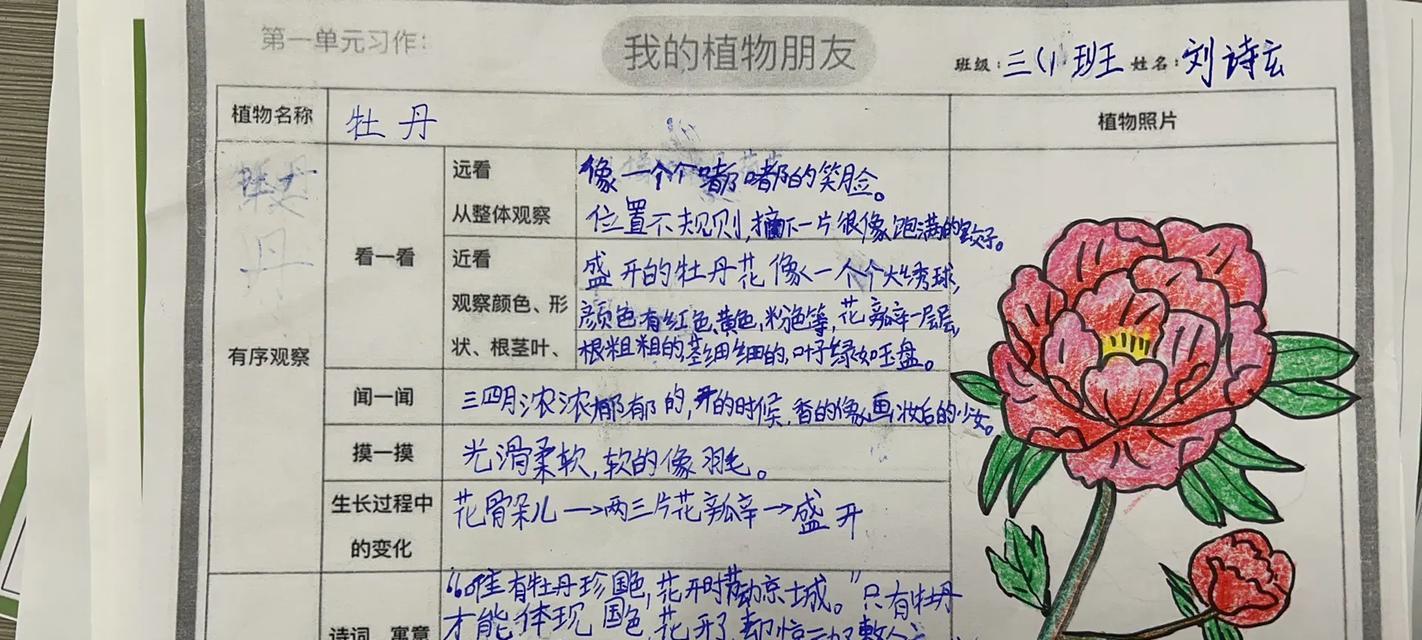 第一单元习作：
我的植物朋友
班级：三(1)班 姓名：刘诗玄
植物名称
牡丹
植物照片
有序观察
看一看
远看
从整体观察
像一个个嘟嘟的笑脸。
位置不规则,摘下一片很像饱满的饺子。
近看
观察颜色、形
状、根茎叶、
盛开的牡丹花像一个个大绣球,
颜色有红色,黄色,粉色等,花瓣一层层,
根粗粗的,茎细细的,叶子绿如玉盘。
闻一闻
三四月浓浓郁郁的,开的时候,香的像画妆后的少女。
摸一摸
光滑柔软,软的像羽毛。
生长过程中
的变化
花骨朵儿→两三片花瓣→盛开
诗词、寓意
“唯有牡丹珍国色,花开时节动京城。”只有牡丹
才能体现国色,花开了,却惊